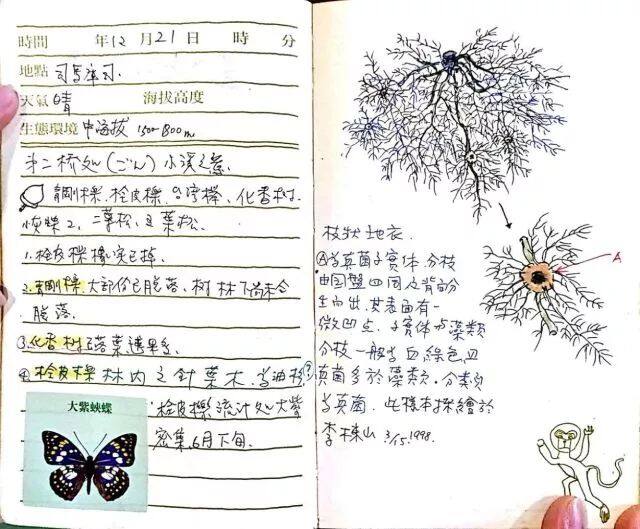 時間 年12月21日 時 分
地點 司馬庫司.
天氣 晴 海拔高度
生態環境 中海拔 1500-1800m
第二橋处(ごん)小溪之意
青剛櫟、栓皮櫟、台灣櫸、化香樹.
二葉松、五葉松.
1.栓皮櫟橡实已掉.
2.青剛櫟大部份已脫落、樹林下尚未合
脫落.
③.化香樹已落葉
④.栓皮櫟林內之針葉木、為油杉
栓皮櫟流汁处大紫
密集.6月下旬.
大紫蛺蝶
枝状地衣.
A
Ⓐ為真菌子實体.分枝
由圓盤四周之背部
生而出.其表面有一
微凹点.子實体与藻類
分枝一般為血綠色.且
真菌多於藻類.
為真菌.此標本採繪於
李棟山 3/15.1998.